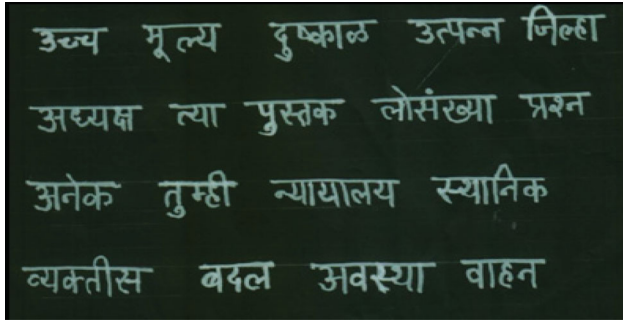 उच्च मूल्य दुष्काळ उत्पन्न जिल्हा
अध्यक्ष त्या पुस्तक लोसंख्या प्रश्न
अनेक तुम्ही न्यायालय स्थानिक
व्यक्तीस बदल अवस्था वाहन